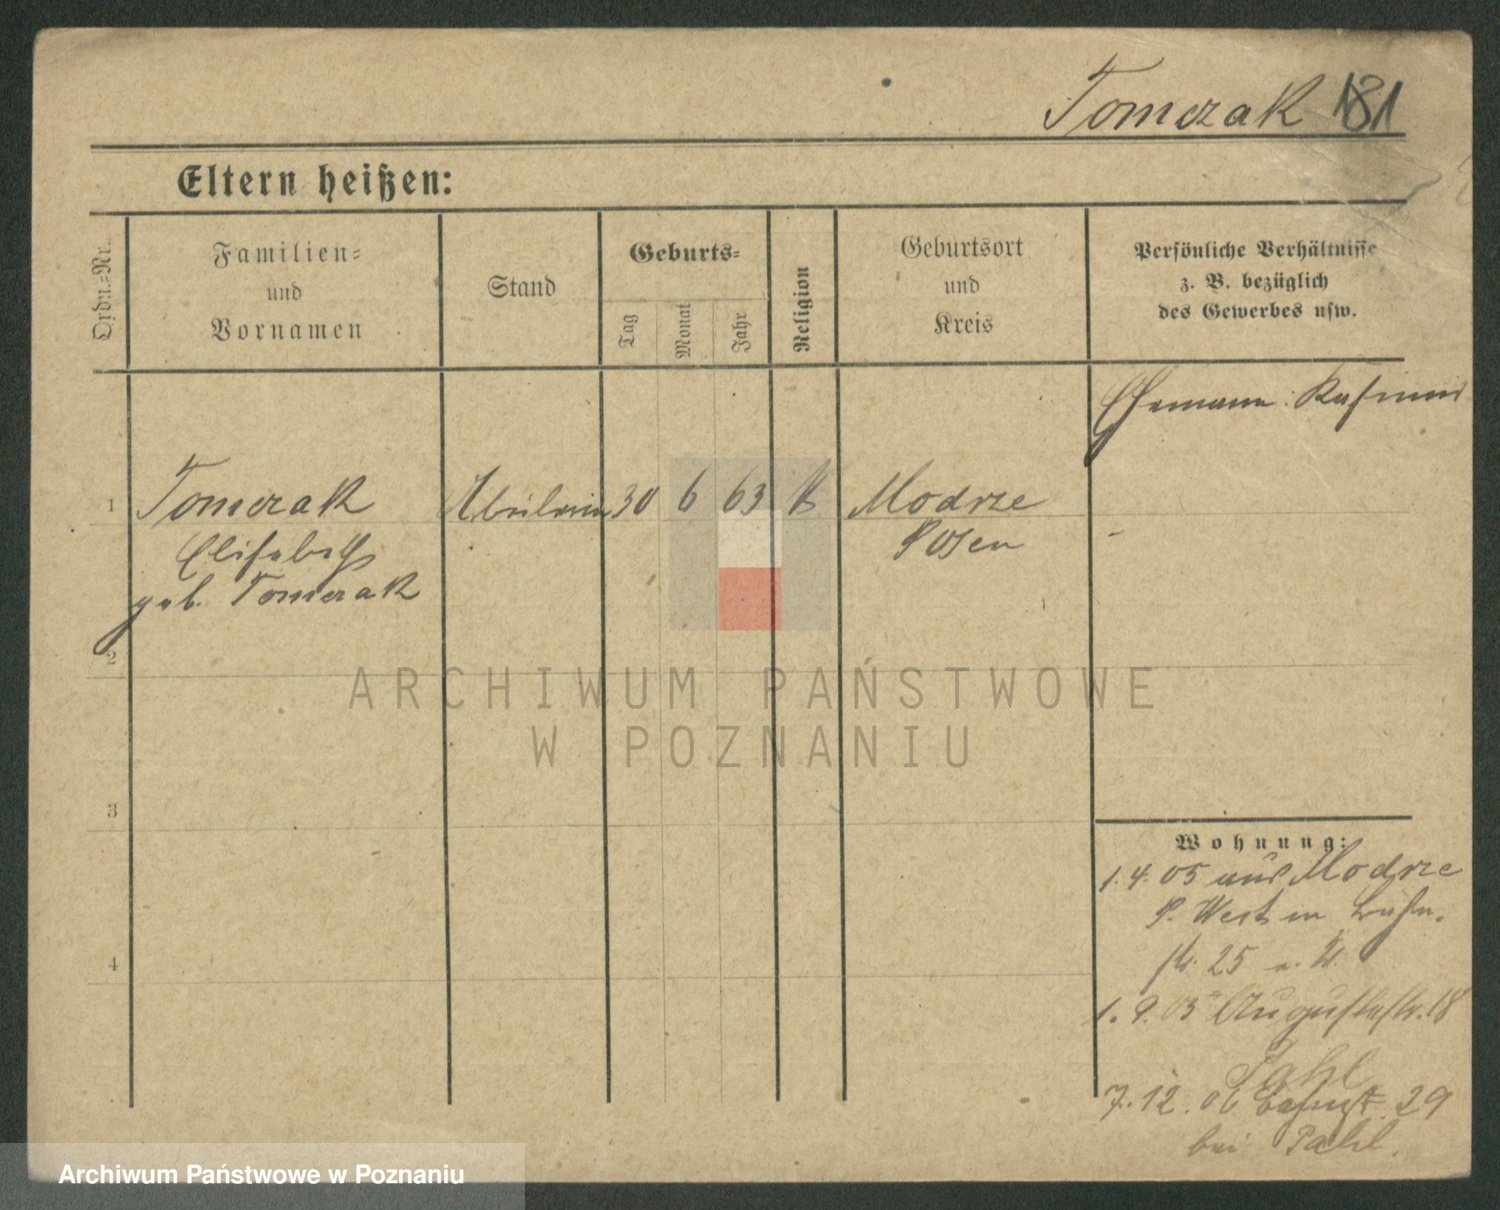 Tomczak 181
Eltern heißen:
Ordn.=Nr.
Familien=
und
Vornamen
Stand
Geburts=
Tag
Monat
Jahr
Religion
Geburtsort
und
Kreis
Persönliche Verhältnisse
z. B. bezüglich
des Gewerbes usw.
Ehemann: Kasimir
1 Tomczak 30 6 63 K Modrze
Elisabeth Posen
geb. Tomczak
2
3
4
Wohnung:
1.4.05 aus Modrze
P. West in
str. 25
1.9.05 Augustastr. 18
Pahl
7.12.06 29
bei Pahl.
ARCHIWUM PAŃSTWOWE
W POZNANIU
Archiwum Państwowe w Poznaniu